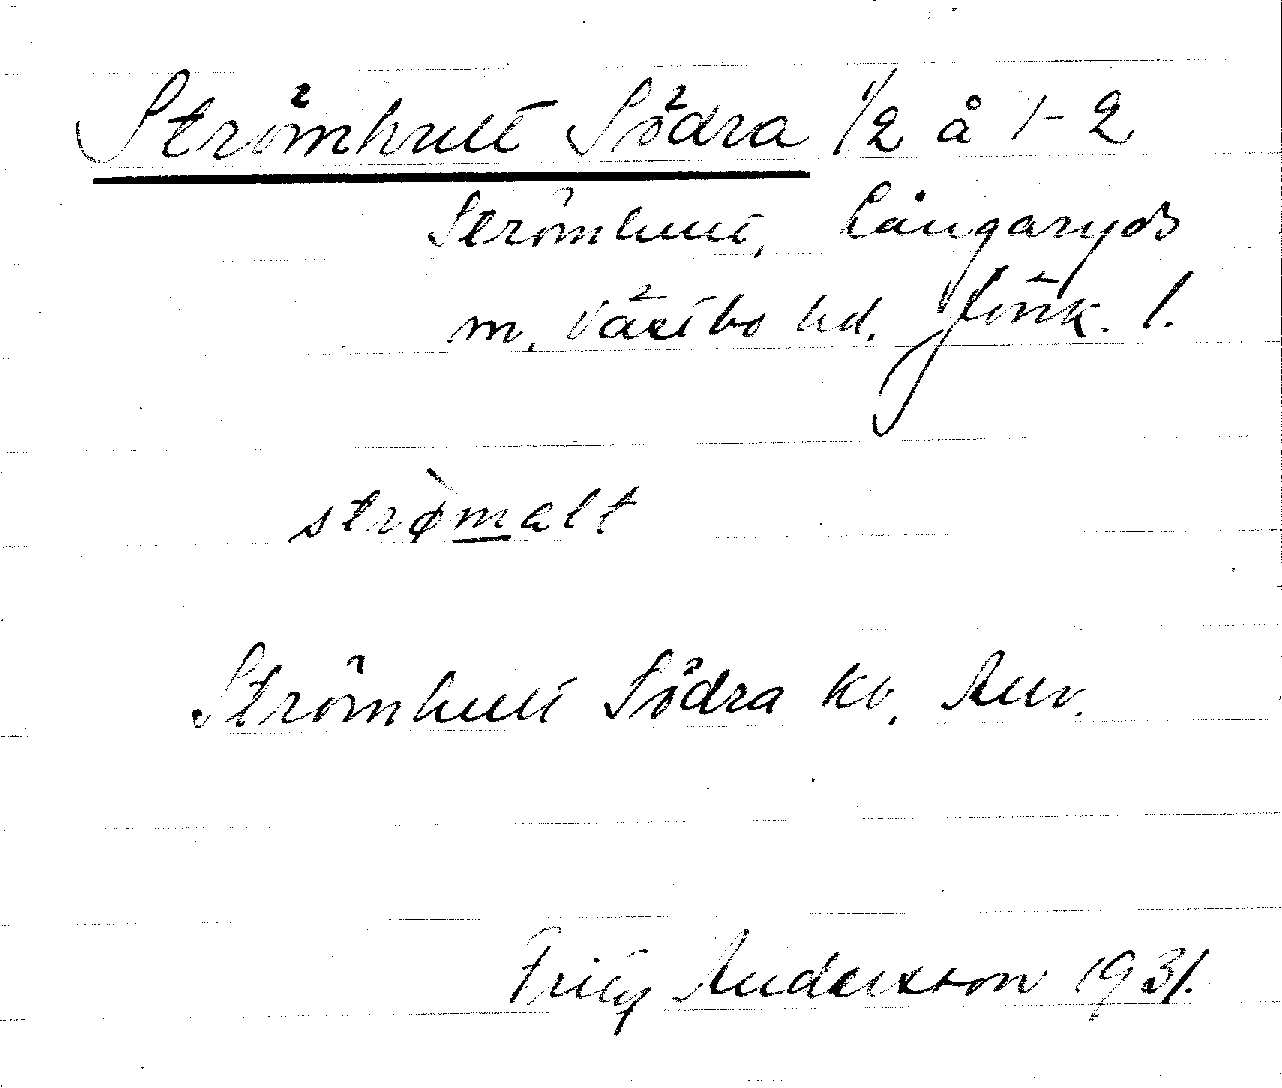 Strömhult Södra 1/2 å 1-2
Strömhult, Långaryds
m. Västbo hd. Jönk. l.
strø̀malt
Strömhult Södra kv.
Fritz Andersson 1931.